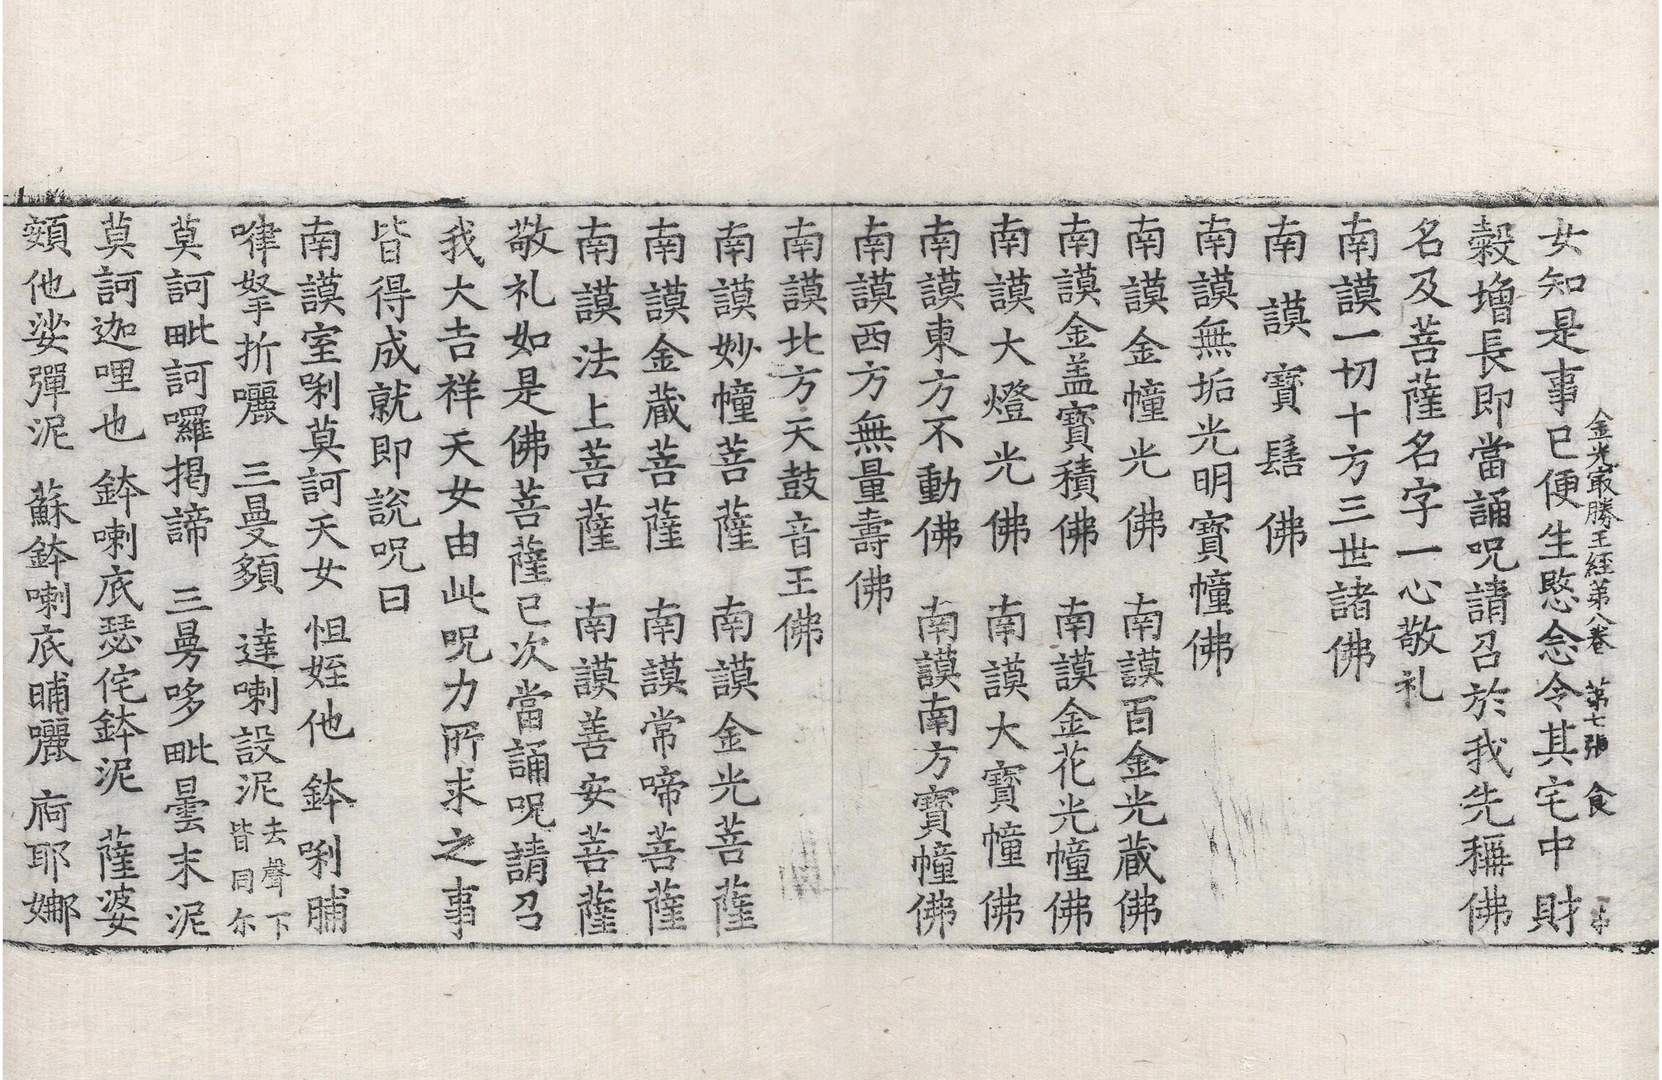 金光最勝王經第八卷　第七張　食
女知是事已便生愍念令其宅中財
穀增長即當誦呪請召於我先稱佛
名及菩薩名字一心敬礼
南謨一切十方三世諸佛
南謨寶髻佛
南謨無垢光明寶幢佛
南謨金幢光佛　南謨百金光藏佛
南謨金盖寶積佛　南謨金花光幢佛
南謨大燈光佛　南謨大寶幢佛
南謨東方不動佛　南謨南方寶幢佛
南謨西方無量壽佛
南謨北方天鼓音王佛
南謨妙幢菩薩　南謨金光菩薩
南謨金藏菩薩　南謨常啼菩薩
南謨法上菩薩　南謨善安菩薩
敬礼如是佛菩薩已次當誦呪請召
我大吉祥天女由此呪力所求之事
皆得成就即說呪曰
南謨室唎莫訶天女　怛姪他　鉢唎脯
㗚拏折囇　三曼䫂　達喇設泥去聲下皆同尔
莫訶毗訶囉揭諦　三曼哆毗曇末泥
莫訶迦哩也　鉢喇底瑟侘鉢泥　薩婆
頞他娑彈泥　蘇鉢喇底晡囇　痾耶娜